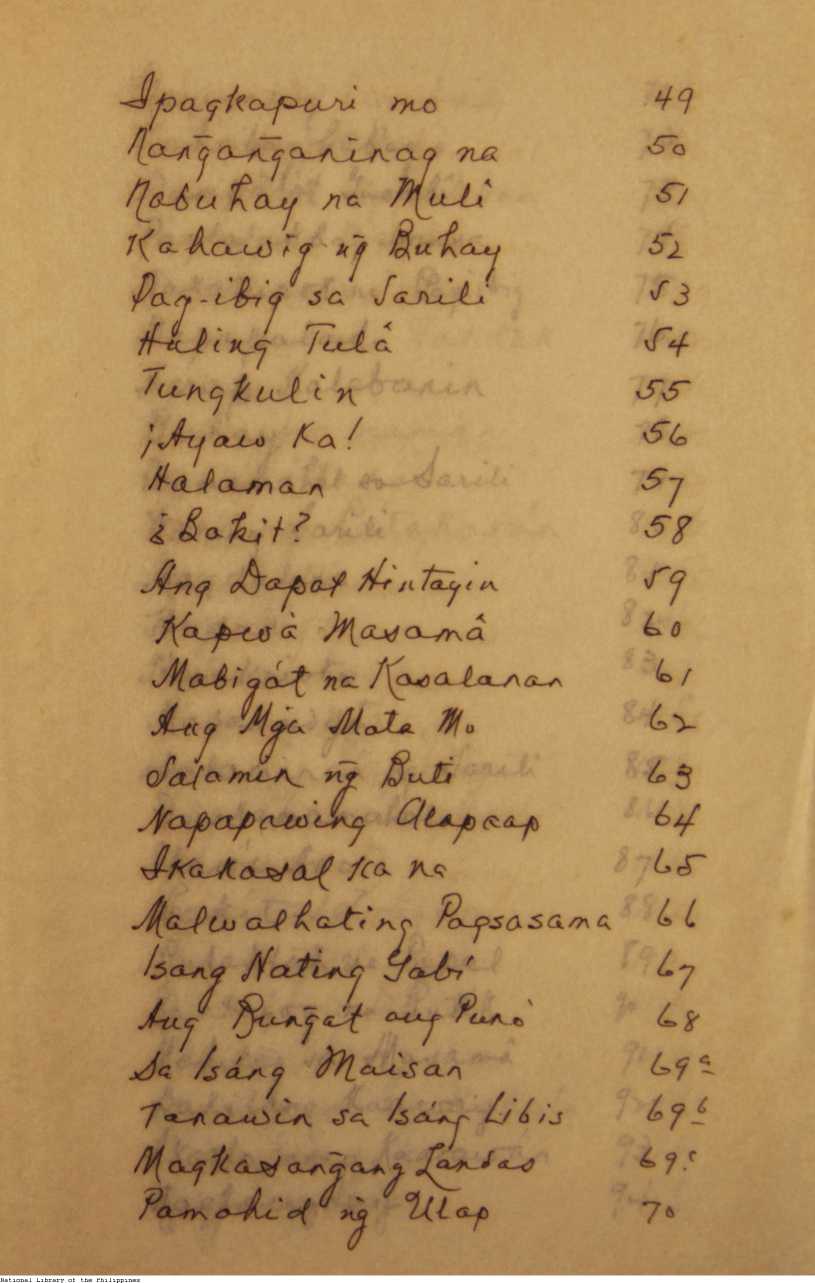 Ipagkapuri mo 49
Nang̃ang̃aninag na 50
Nabuhay na Muli 51
Kahawig ng̃ Buhay 52
Pag-ibig sa Sarili 53
Huling Tulâ 54
Tungkulin 55
¡Ayaw Ka! 56
Halaman 57
¿Bakit? 58
Ang Dapat Hintayin 59
Kapwà Masamâ 60
Mabigát na Kasalanan 61
Ang Mg̃a Mata Mo 62
Salamin ng̃ Buti 63
Napapawing Alapaap 64
Ikakasal ka na 65
Malwalhating Pagsasama 66
Isang Nating Gabí 67
Ang Bung̃a't ang Punò 68
Sa Isáng Maisan 69a
Tanawin sa Isáng Libis 69b
Magkasang̃ang Landas 69c
Pamahid ng̃ Ulap 70
National Library of the Philippines